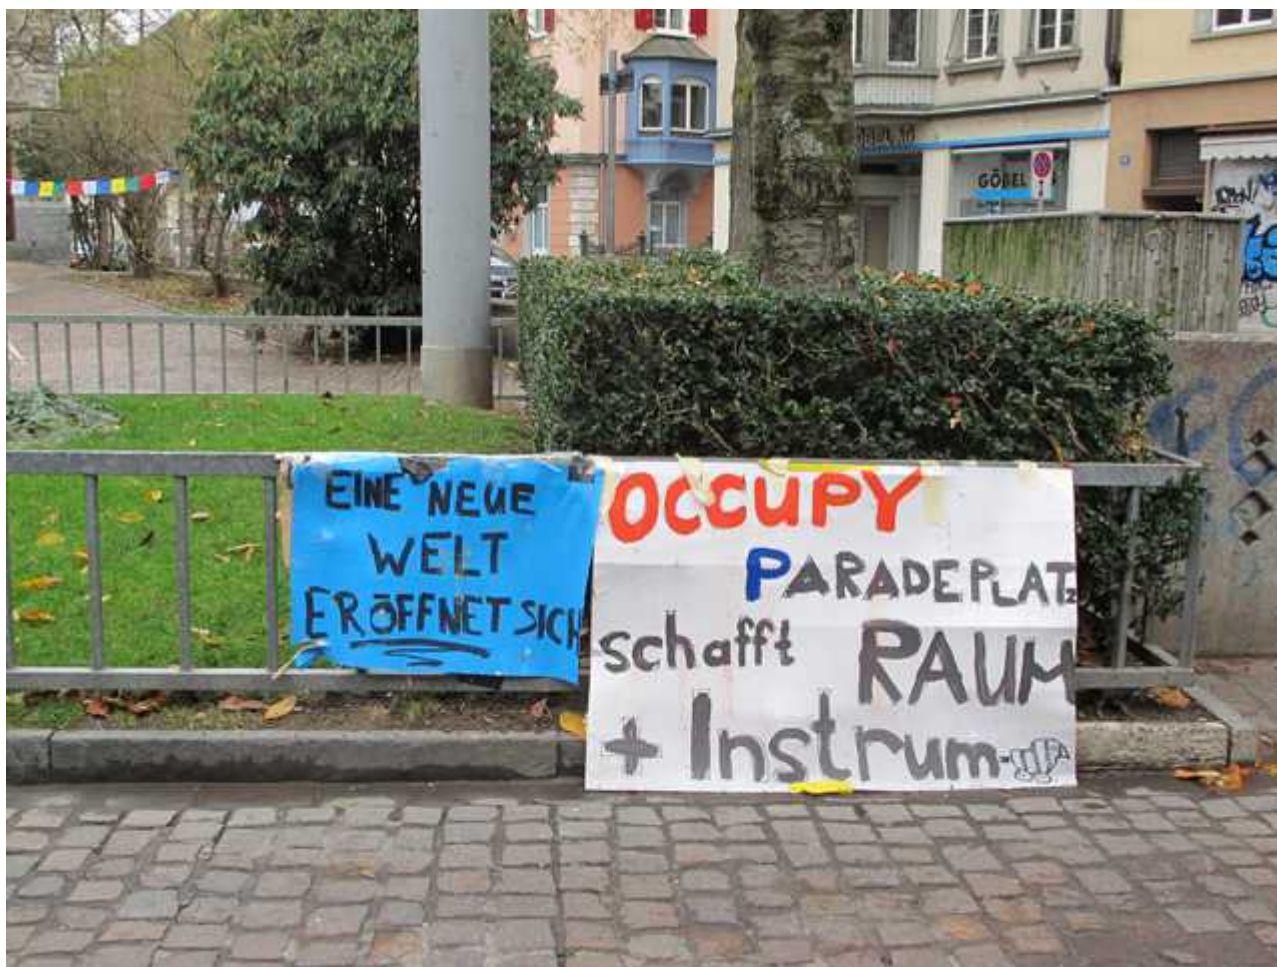 EINE NEUE
WELT
ERÖFFNET SICH
OCCUPY
PARADEPLATZ
schafft RAUM
+ Instrum-
GÖBEL